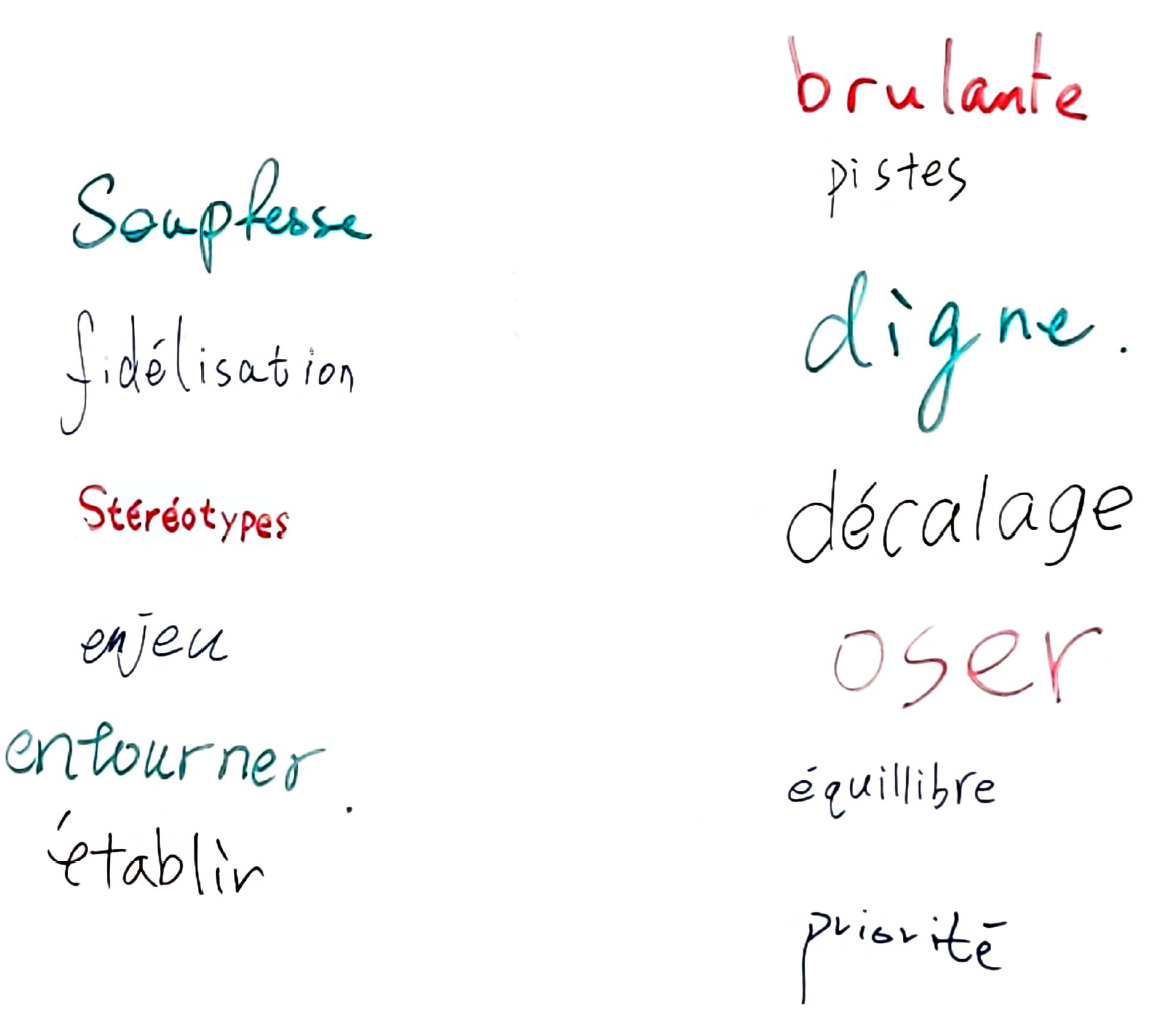 Souplesse
fidélisation
Stéréotypes
enjeu
entourner.
établir
brulante
pistes
digne.
décalage
oser
équillibre
priorité